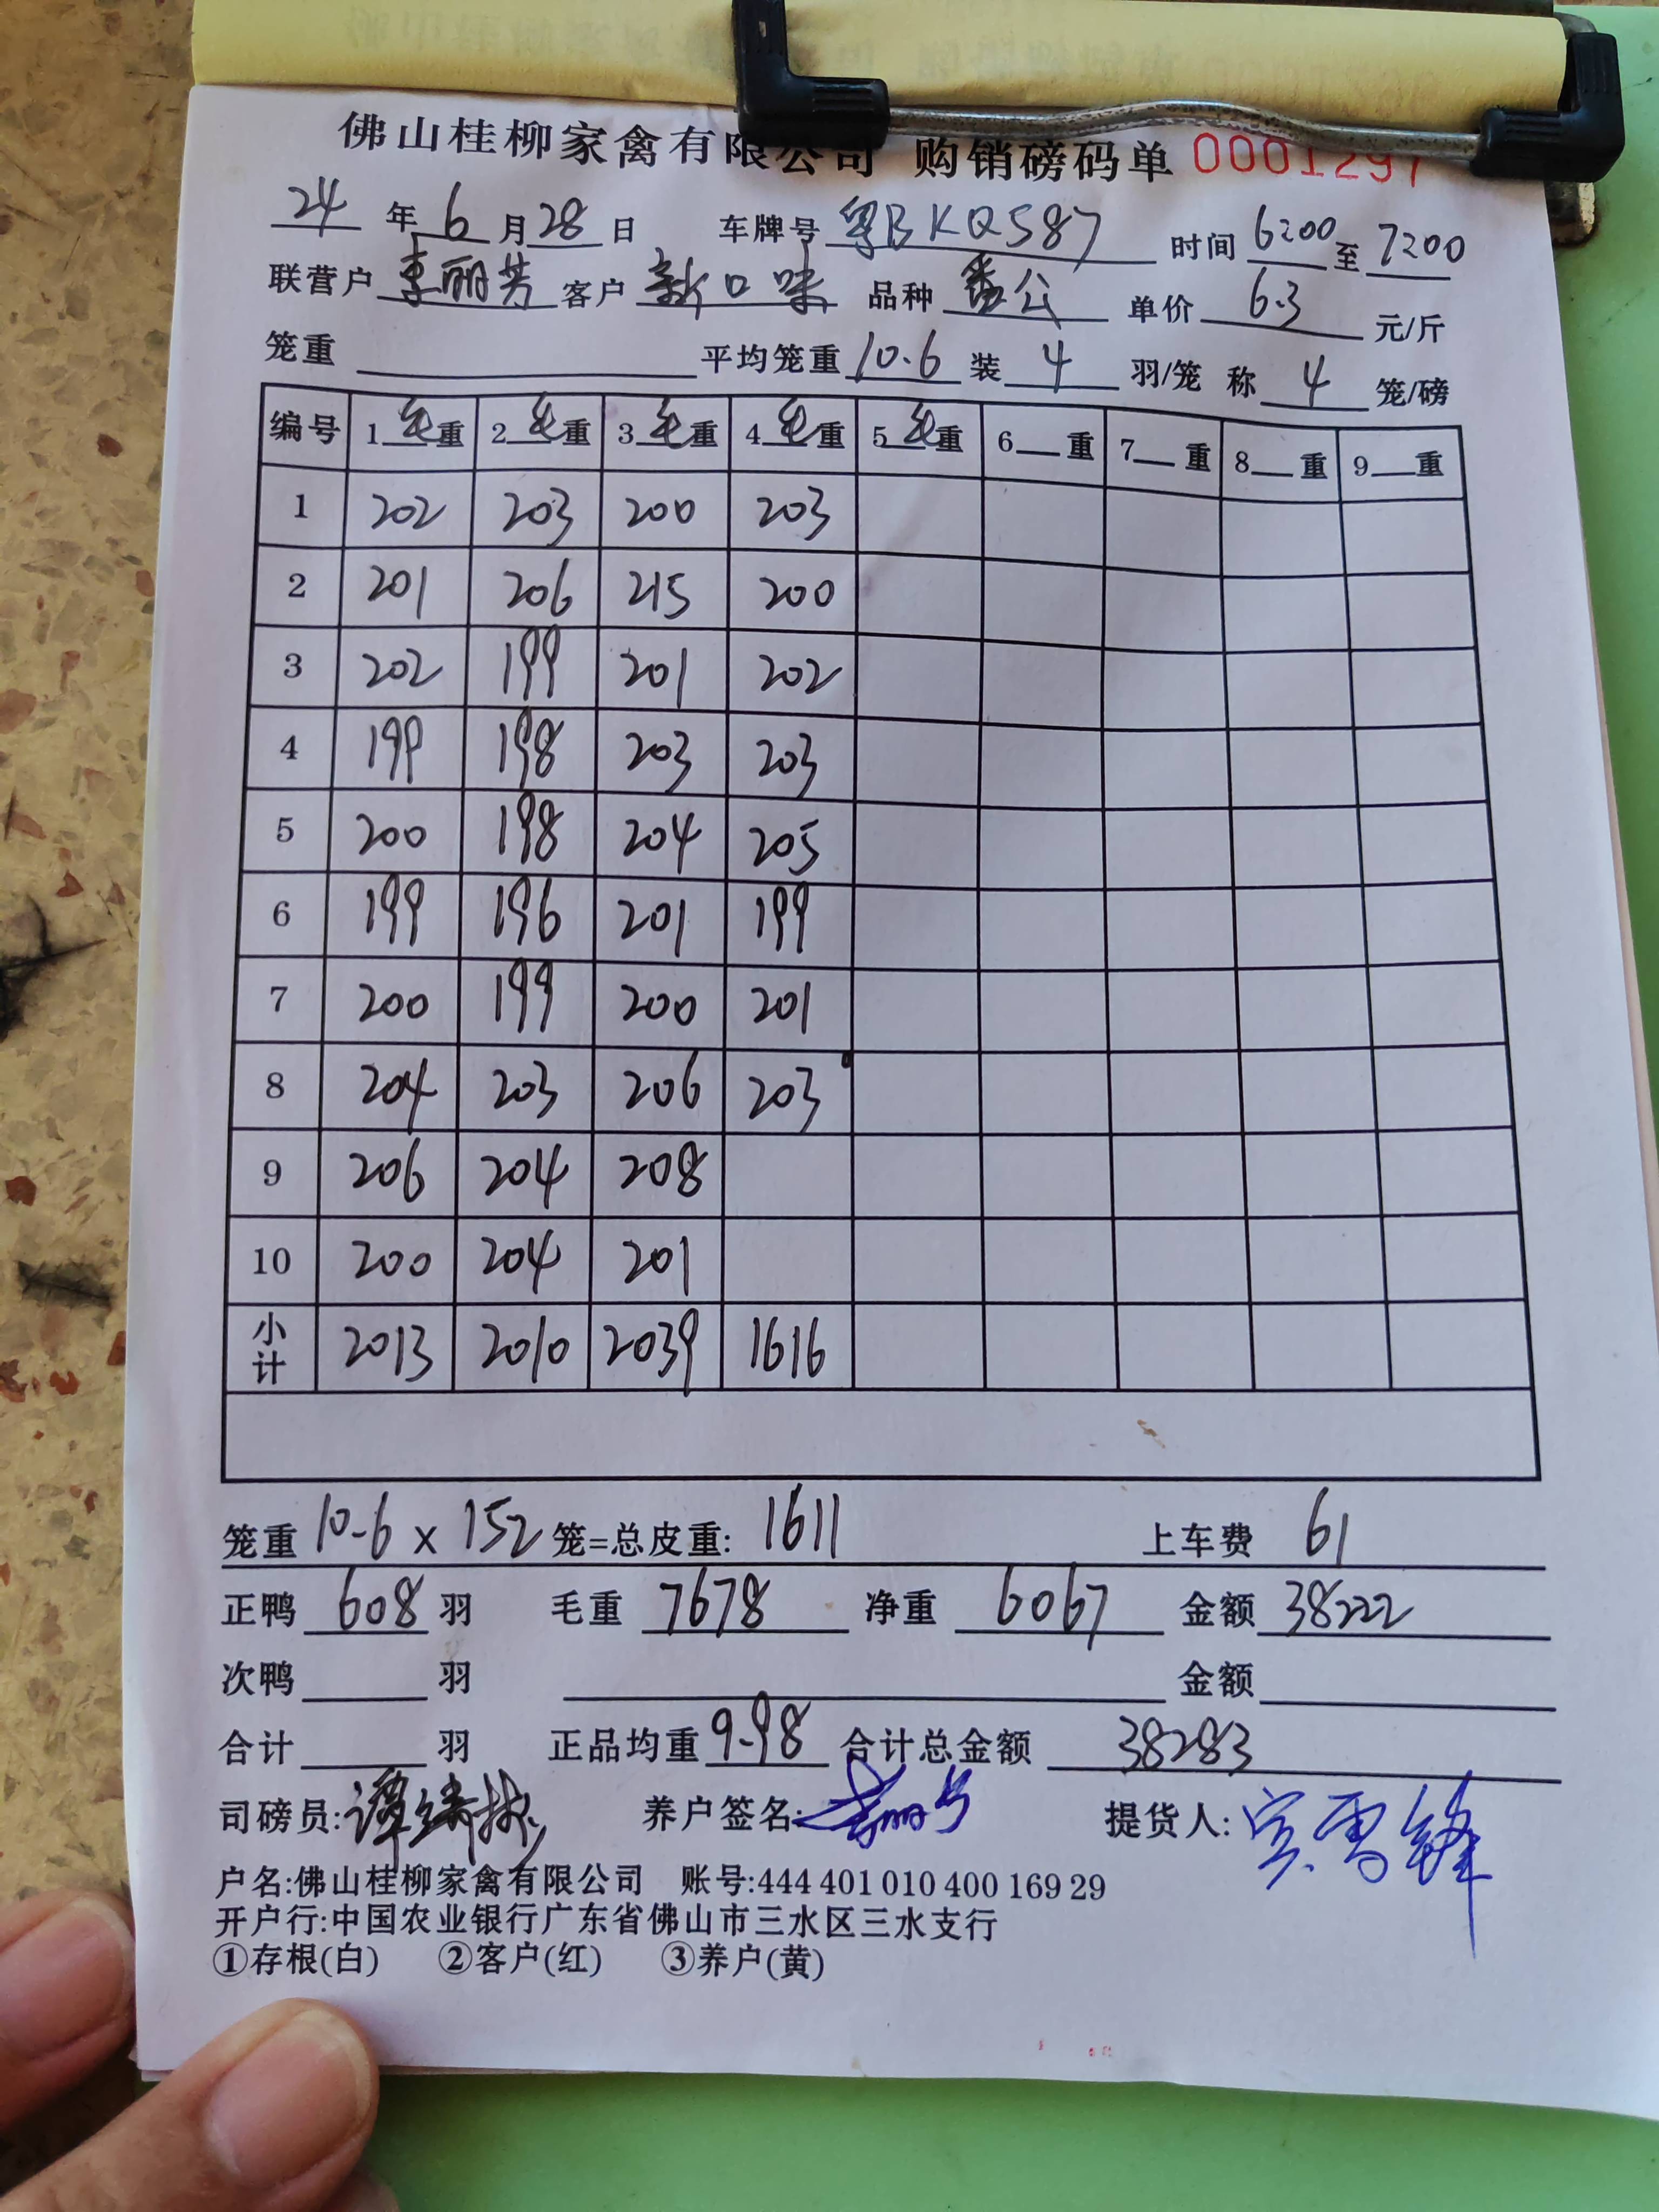 佛山桂柳家禽有限公司 购销磅码单 0001297
24 年 6 月 28 日 车牌号 粤BKQ587 时间 6:00 至 7:00
联营户 李丽芳 客户 新口味 品种 番公 单价 6.3 元/斤
笼重 平均笼重 10.6 装 4 羽/笼 称 4 笼/磅
编号 1 毛重 2 毛重 3 毛重 4 毛重 5 毛重 6 重 7 重 8 重 9 重
1 202 203 200 203
2 201 206 215 200
3 202 199 201 202
4 199 198 203 203
5 200 198 204 205
6 199 196 201 199
7 200 199 200 201
8 204 203 206 203
9 206 204 208
10 200 204 201
小计 2013 2010 2039 1616
笼重 10.6 x 152 笼=总皮重: 1611 上车费 61
正鸭 608 羽 毛重 7678 净重 6067 金额 38222
次鸭 羽 金额
合计 羽 正品均重 9.98 合计总金额 38283
司磅员: 养户签名: 李丽芳 提货人:
户名:佛山桂柳家禽有限公司 账号:444 401 010 400 169 29
开户行:中国农业银行广东省佛山市三水区三水支行
①存根(白) ②客户(红) ③养户(黄)